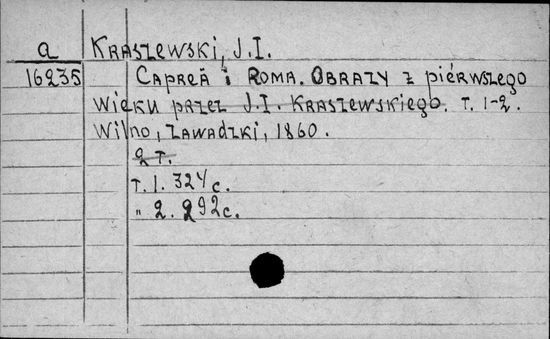 a Kraszewski, J.I.
16235 Capreä i Roma. Obrazy z piérwszego
wieku przez J.I. Kraszewskiego. T. 1-2.
Wilno, Zawadzki, 1860.
2 T.
T. 1. 324 c.
„ 2. 292 c.